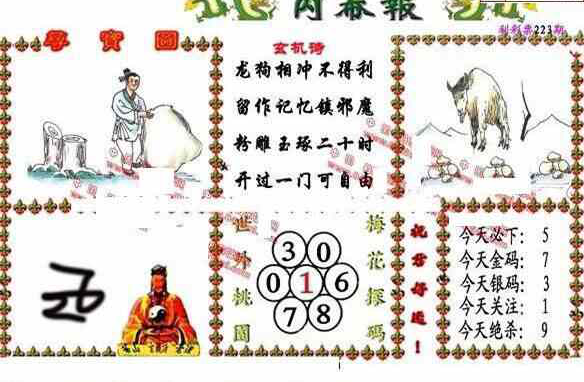 内幕報
利彩票223期
尋寶圖
玄机诗
龙狗相冲不得利
留作记忆镇邪魔
粉雕玉琢二十时
开过一门可自由
世外桃園
3 0
0 1 6
7 8
梅花探碼
祝君好運！
今天必下：5
今天金码：7
今天银码：3
今天关注：1
今天绝杀：9